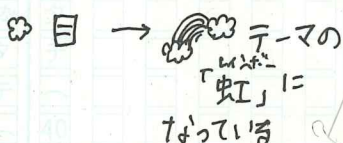 目 → テーマの
レインボー
「虹」に
なっている